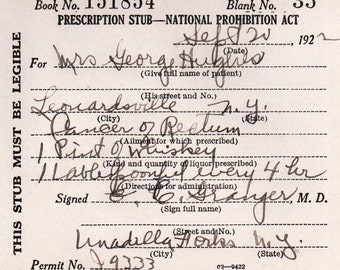 Book No. 151854 Blank No. 35
PRESCRIPTION STUB—NATIONAL PROHIBITION ACT
Sept 20, 1922
(Date)
For Mrs George Hughes
(Give full name of patient)
(His street and No.)
Leonardsville N.Y.
(City) (State)
Cancer of Rectum
(Ailment for which prescribed)
1 Pint of Whiskey
(Kind and quantity of liquor prescribed)
1 Tablespoonful every 4 hr
(Directions for administration)
Signed C. C. Granger, M. D.
(Sign full name)
(Street and No.)
Unadilla Forks N.Y.
(City) (State)
Permit No. J-9333 c2—9422
THIS STUB MUST BE LEGIBLE